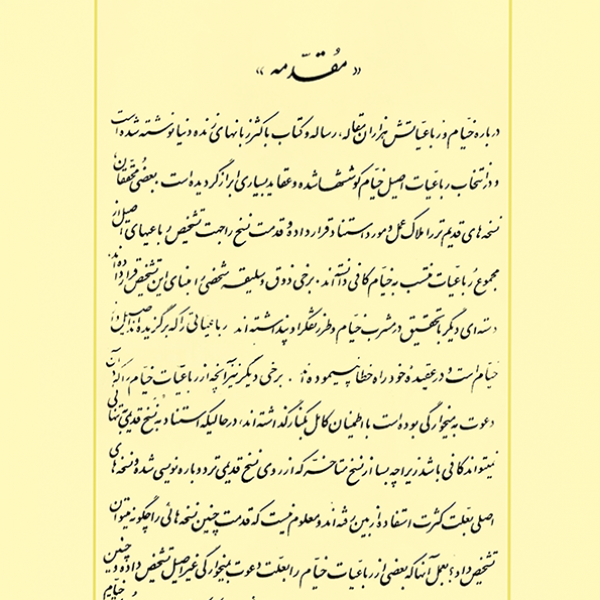 « مُقدّمه »
درباره خیّام و رباعیّاتش هزاران مقاله، رساله و کتاب باکثر زبانهای زنده دنیا نوشته شده است
و در انتخاب رباعیات اصیل خیّام کوششها شده و عقاید بسیاری ابراز گردیده است. بعضی محققّان
نسخه‌های قدیم‌تر را ملاک عمل و مورد استناد قرار داده و قدمت نسخ را جهت تشخیص رباعیهای اصیل از
مجموع رباعیّات منتسب به خیّام کافی دانسته‌اند. برخی ذوق و سلیقه شخصی را مبنای این تشخیص قرار داده‌اند.
دسته‌ای دیگر با تحقیق در مشرب خیّام و طرز تفکر او پنداشته‌اند رباعیاتی را که برگزیده‌اند اصیل و از
خیّام است و در عقیده خود راه خطا نپیموده‌اند. برخی دیگر نیز آنچه از رباعیّات خیّام را که در آن
دعوت به میخوارگی بوده است با اطمینان کامل بکنار گذاشته‌اند، در حالیکه استناد به نسخ قدیمی بتنهائی
نمیتواند کافی باشد زیرا چه بسا از نسخ متاخّر که از روی نسخ قدیمی‌تر دوباره نویسی شده و نسخه‌های
اصلی بعلّت کثرت استفاده از بین رفته‌اند و معلوم نیست که قدمت چنین نسخه‌هائی را چگونه میتوان
تشخیص داد؟ بعمل آنها که بعضی از رباعیّات خیّام را بعلّت دعوت بمیخوارگی غیر اصیل تشخیص داده و چنین
خیّام